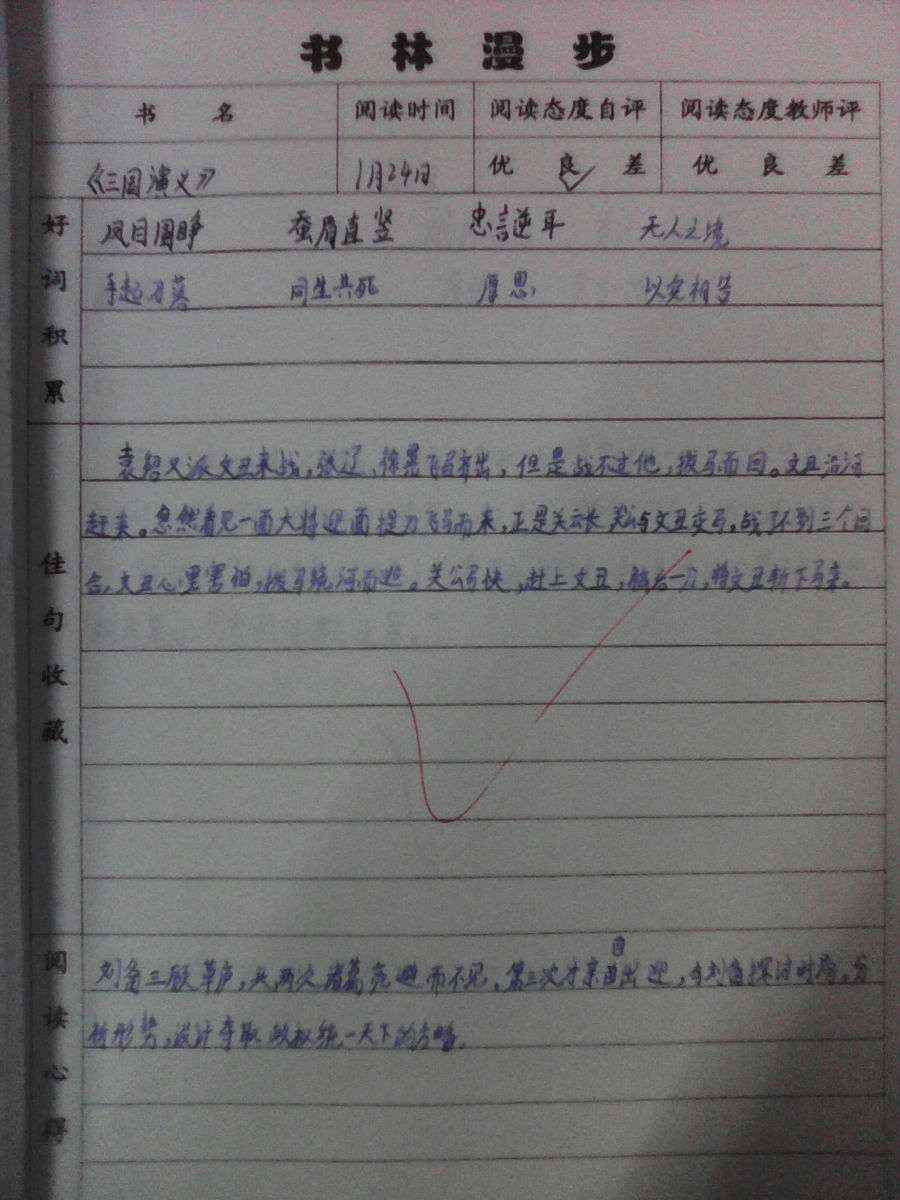 书林漫步
书名 阅读时间 阅读态度自评 阅读态度教师评
《三国演义》 1月24日 优 良 差 优 良 差
好词积累
凤目圆睁 蚕眉直竖 忠言逆耳 无人之境
手起刀落 同生共死 厚恩 以实相告
佳句收藏
袁绍又派文丑来战,张辽、徐晃飞马齐出,但是战不过他,拨马而回。文丑沿河
赶来。忽然看见一面大将迎面提刀飞马而来,正是关云长 关公与文丑交马,战了不到三个回
合,文丑心里害怕,拨马绕河而逃。关公马快,赶上文丑,脑后一刀,将文丑斩下马来。
阅读心得
刘备三顾草庐,头两次诸葛亮避而不见,第三次才亲自出迎,与刘备探讨时局,分
析形势,设计夺取政权统一天下的方略。